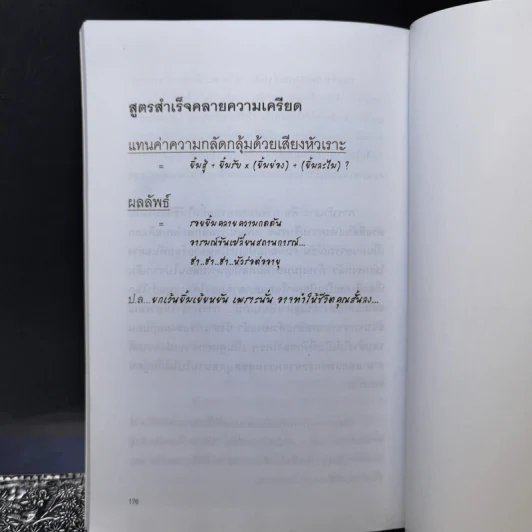 สูตรสำเร็จคลายความเครียด
แทนค่าความกลัดกลุ้มด้วยเสียงหัวเราะ
= ยิ้มสู้ + ยิ้มรับ x (ยิ้มย่อง) + (ยิ้มละไม) ?
ผลลัพธ์
= รอยยิ้มคลายความกดดัน
อารมณ์ขันเปลี่ยนสถานการณ์...
ฮ่า..ฮ่า..ฮ่า..หัวร่อต่ออายุ
ป.ล...ยกเว้นยิ้มเยี่ยมยัน เพราะนั่น อาจทำให้ชีวิตคุณสั้นลง...
176